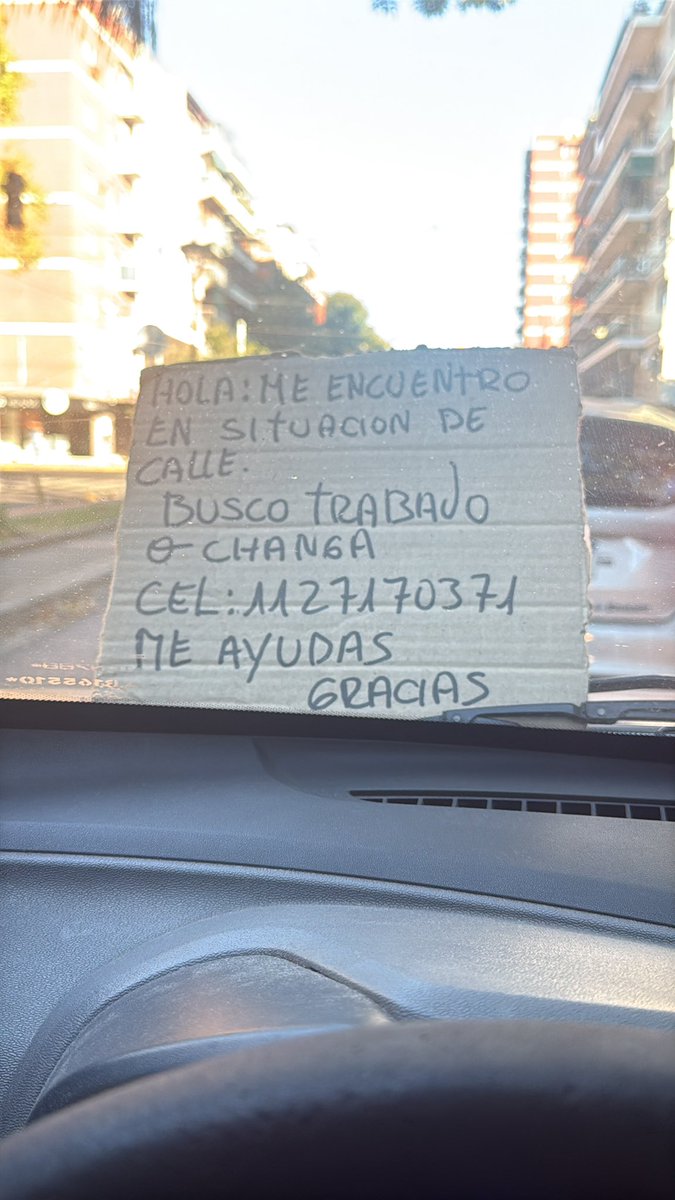 HOLA: ME ENCUENTRO
EN SITUACION DE
CALLE.
BUSCO TRABAJO
O CHANGA
CEL: 1127170371
ME AYUDAS
GRACIAS